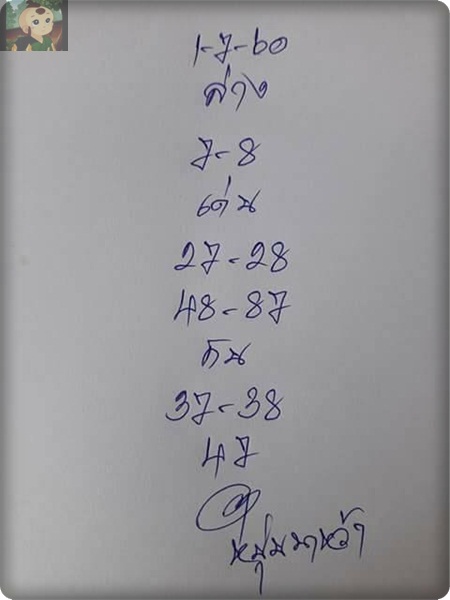 1-7-60
ล่าง
7-8
เด่น
27-28
48-87
กัน
37-38
47
หนุ่มนาหว้า